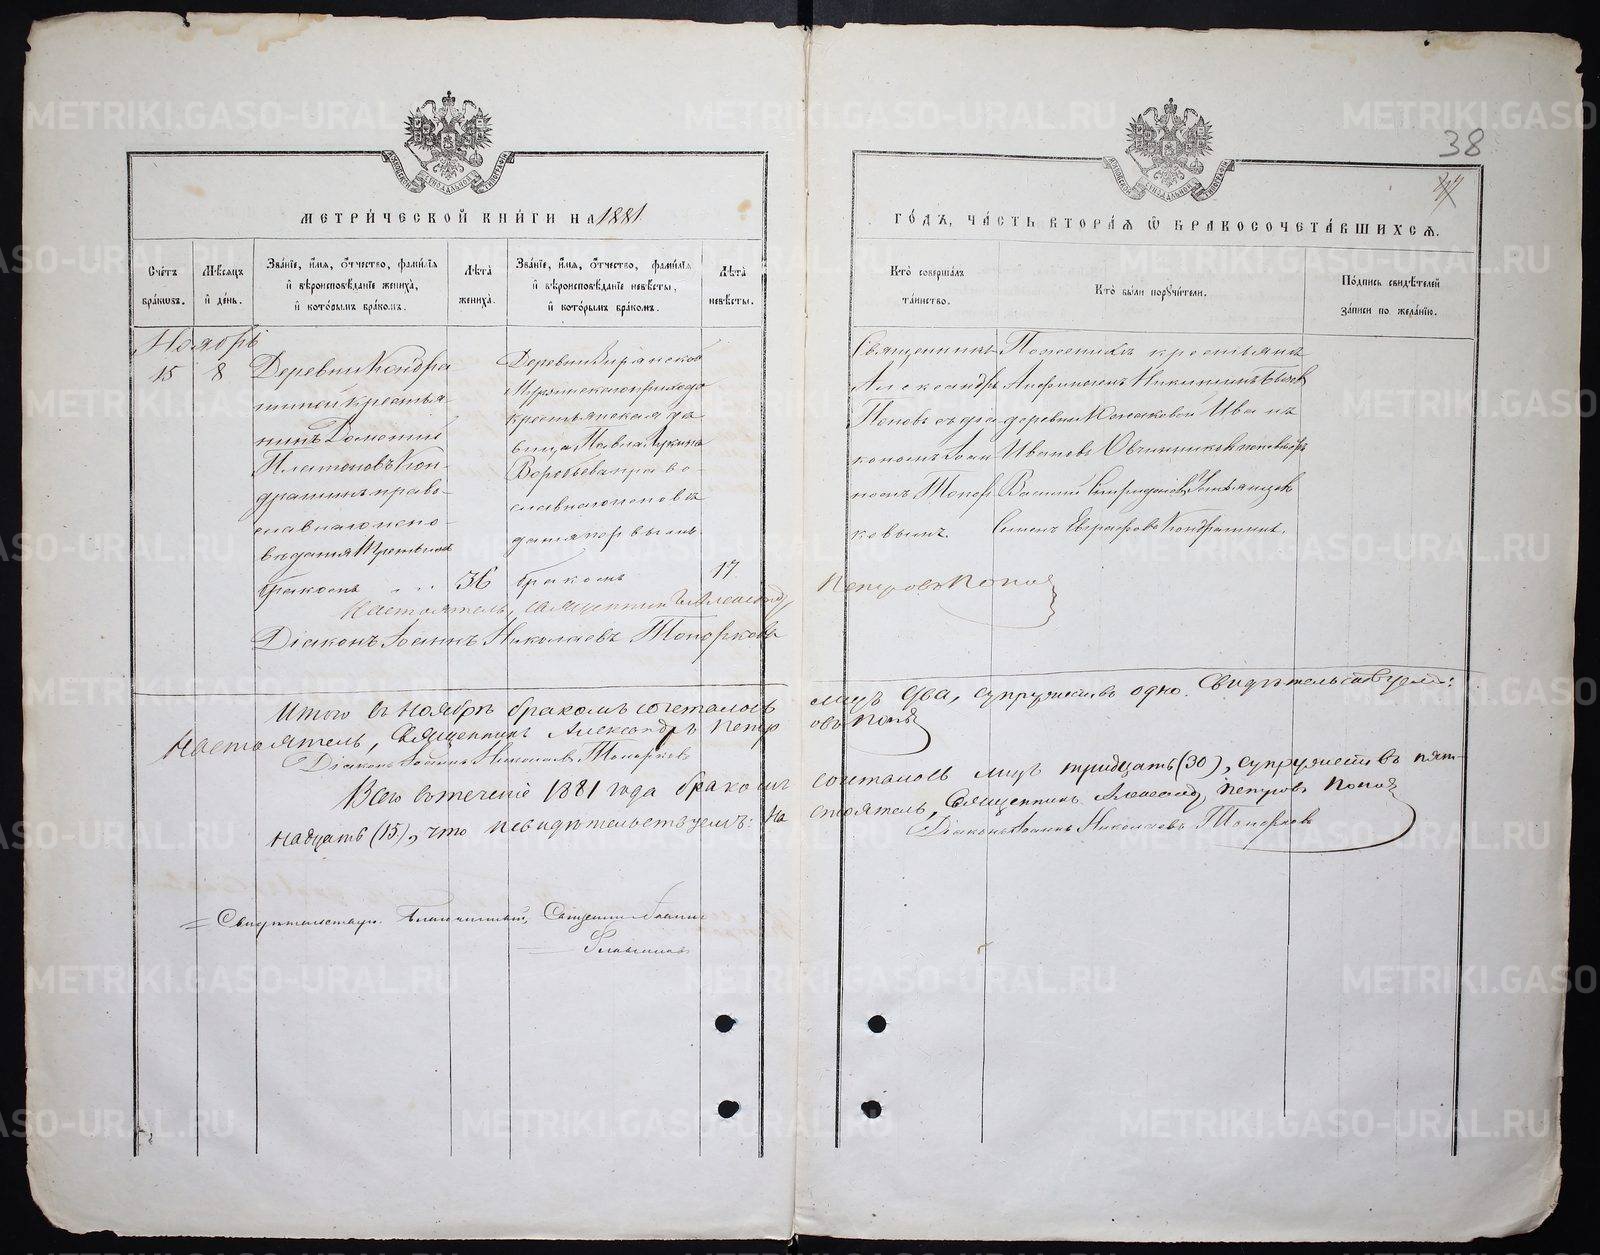 38
МЕТРИ́ЧЕСКОЙ КНИ́ГИ НА 1881
ГО́ДЪ, ЧА́СТЬ ВТОРА́Я Ѿ БРАКОСОЧЕТА́ВШИХСЯ.
Сче́тъ бра́ковъ.
Мѣ́сяцъ и҆ де́нь.
Зва́нїе, и҆́мя, ѻ҆́тчество, фами́лїя и҆ вѣроисповѣ́данїе жениха̀, и҆ кото́рымъ бра́комъ.
Лѣ́та жениха̀.
Зва́нїе, и҆́мя, ѻ҆́тчество, фами́лїя и҆ вѣроисповѣ́данїе невѣ́сты, и҆ кото́рымъ бра́комъ.
Лѣ́та невѣ́сты.
Кто̀ соверша́лъ та́инство.
Кто̀ бы́ли поручи́тели.
По́дпись свидѣ́телей за́писи по жела́нїю.
Ноябрь
15
8
Деревни Кондра
шиной крестья
нинъ Дометий
Платоновъ Кон-
драшинъ право-
славнаго испо-
вѣданія Третьимъ
бракомъ
36
Деревни
прихода
крестьянская дѣ
вица Павла Лукина
Воробьева право-
славнаго исповѣ
данія первымъ
бракомъ
17
Священникъ
Александръ
Поповъ съ діа
кономъ Іоан
номъ Топор
ковымъ.
По женихѣ крестьяне
Никитинъ
деревни Иванъ
Ивановъ Овчинниковъ по невѣстѣ
Василий Спиридоновъ
Семенъ Евграфовъ Кондрашинъ.
Настоятель, священникъ Александръ Петровъ Поповъ
Діаконъ Іоаннъ Николаевъ Топорковъ
Итого въ ноябрѣ бракомъ сочеталось лицъ два, супружествъ одно. Свидѣтельствуемъ:
Настоятель, Священникъ Александръ Петровъ Поповъ
Діаконъ Іоаннъ Николаевъ Топорковъ
Всего въ теченіе 1881 года бракомъ сочеталось лицъ тридцать (30), супружествъ пят-
надцать (15), что и свидѣтельствуемъ: Настоятель, Священникъ Александръ Петровъ Поповъ
Діаконъ Іоаннъ Николаевъ Топорковъ
Свидѣтельствовалъ Благочинный, Священникъ Іоаннъ
METRIKI.GASO-URAL.RU